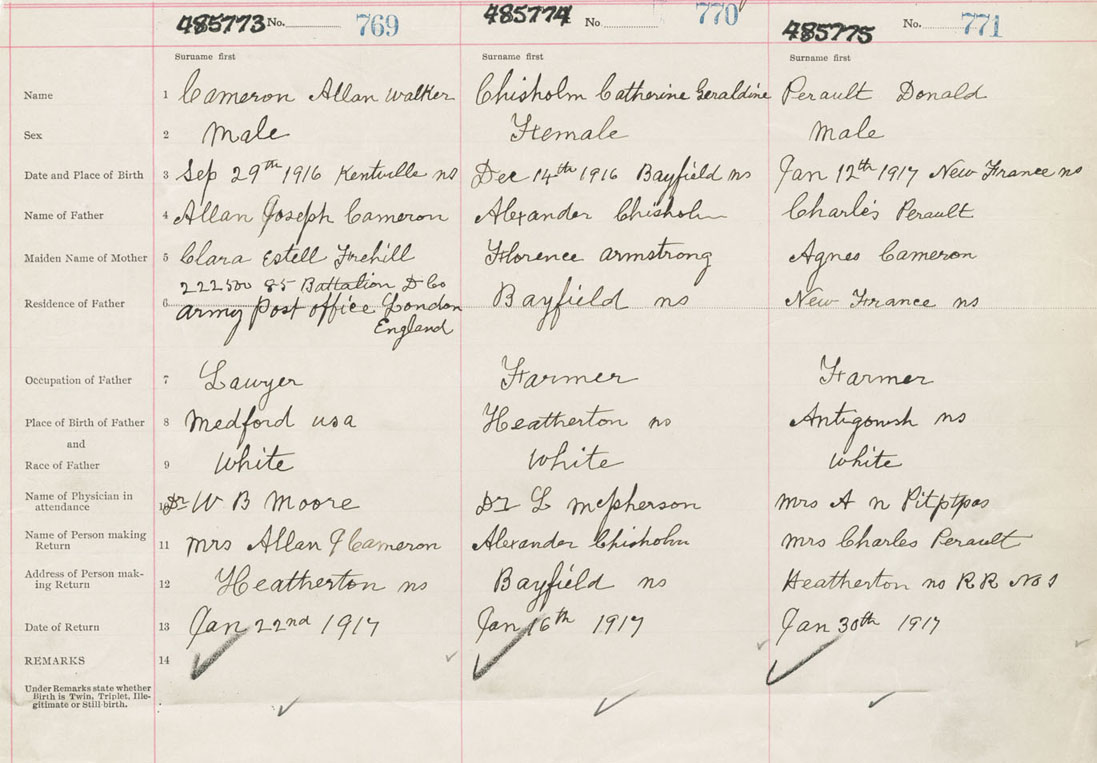 485773 No. 769 485774 No 770 485775 No. 771
Surname first Surname first Surname first
Name 1 Cameron Allan Walker Chisholm Catherine Geraldine Perault Donald
Sex 2 Male Female Male
Date and Place of Birth 3 Sep 29th 1916 Kentville ns Dec 14th 1916 Bayfield ns Jan 12th 1917 New France ns
Name of Father 4 Allan Joseph Cameron Alexander Chisholm Charles Perault
Maiden Name of Mother 5 Clara Estell Frehill Florence Armstrong Agnes Cameron
222500 85 Battalion D Co
Residence of Father 6 Army Post Office London Bayfield ns New France ns
England
Occupation of Father 7 Lawyer Farmer Farmer
Place of Birth of Father 8 Medford usa Heatherton ns Antigonish ns
and
Race of Father 9 White White White
Name of Physician in
attendance 10 Dr W B Moore Dr L McPherson Mrs A n
Name of Person making
Return 11 Mrs Allan J Cameron Alexander Chisholm Mrs Charles Perault
Address of Person mak-
ing Return 12 Heatherton ns Bayfield ns Heatherton ns RR No 1
Date of Return 13 Jan 22nd 1917 Jan 16th 1917 Jan 30th 1917
REMARKS 14
Under Remarks state whether
Birth is Twin, Triplet, Ille-
gitimate or Still-birth.